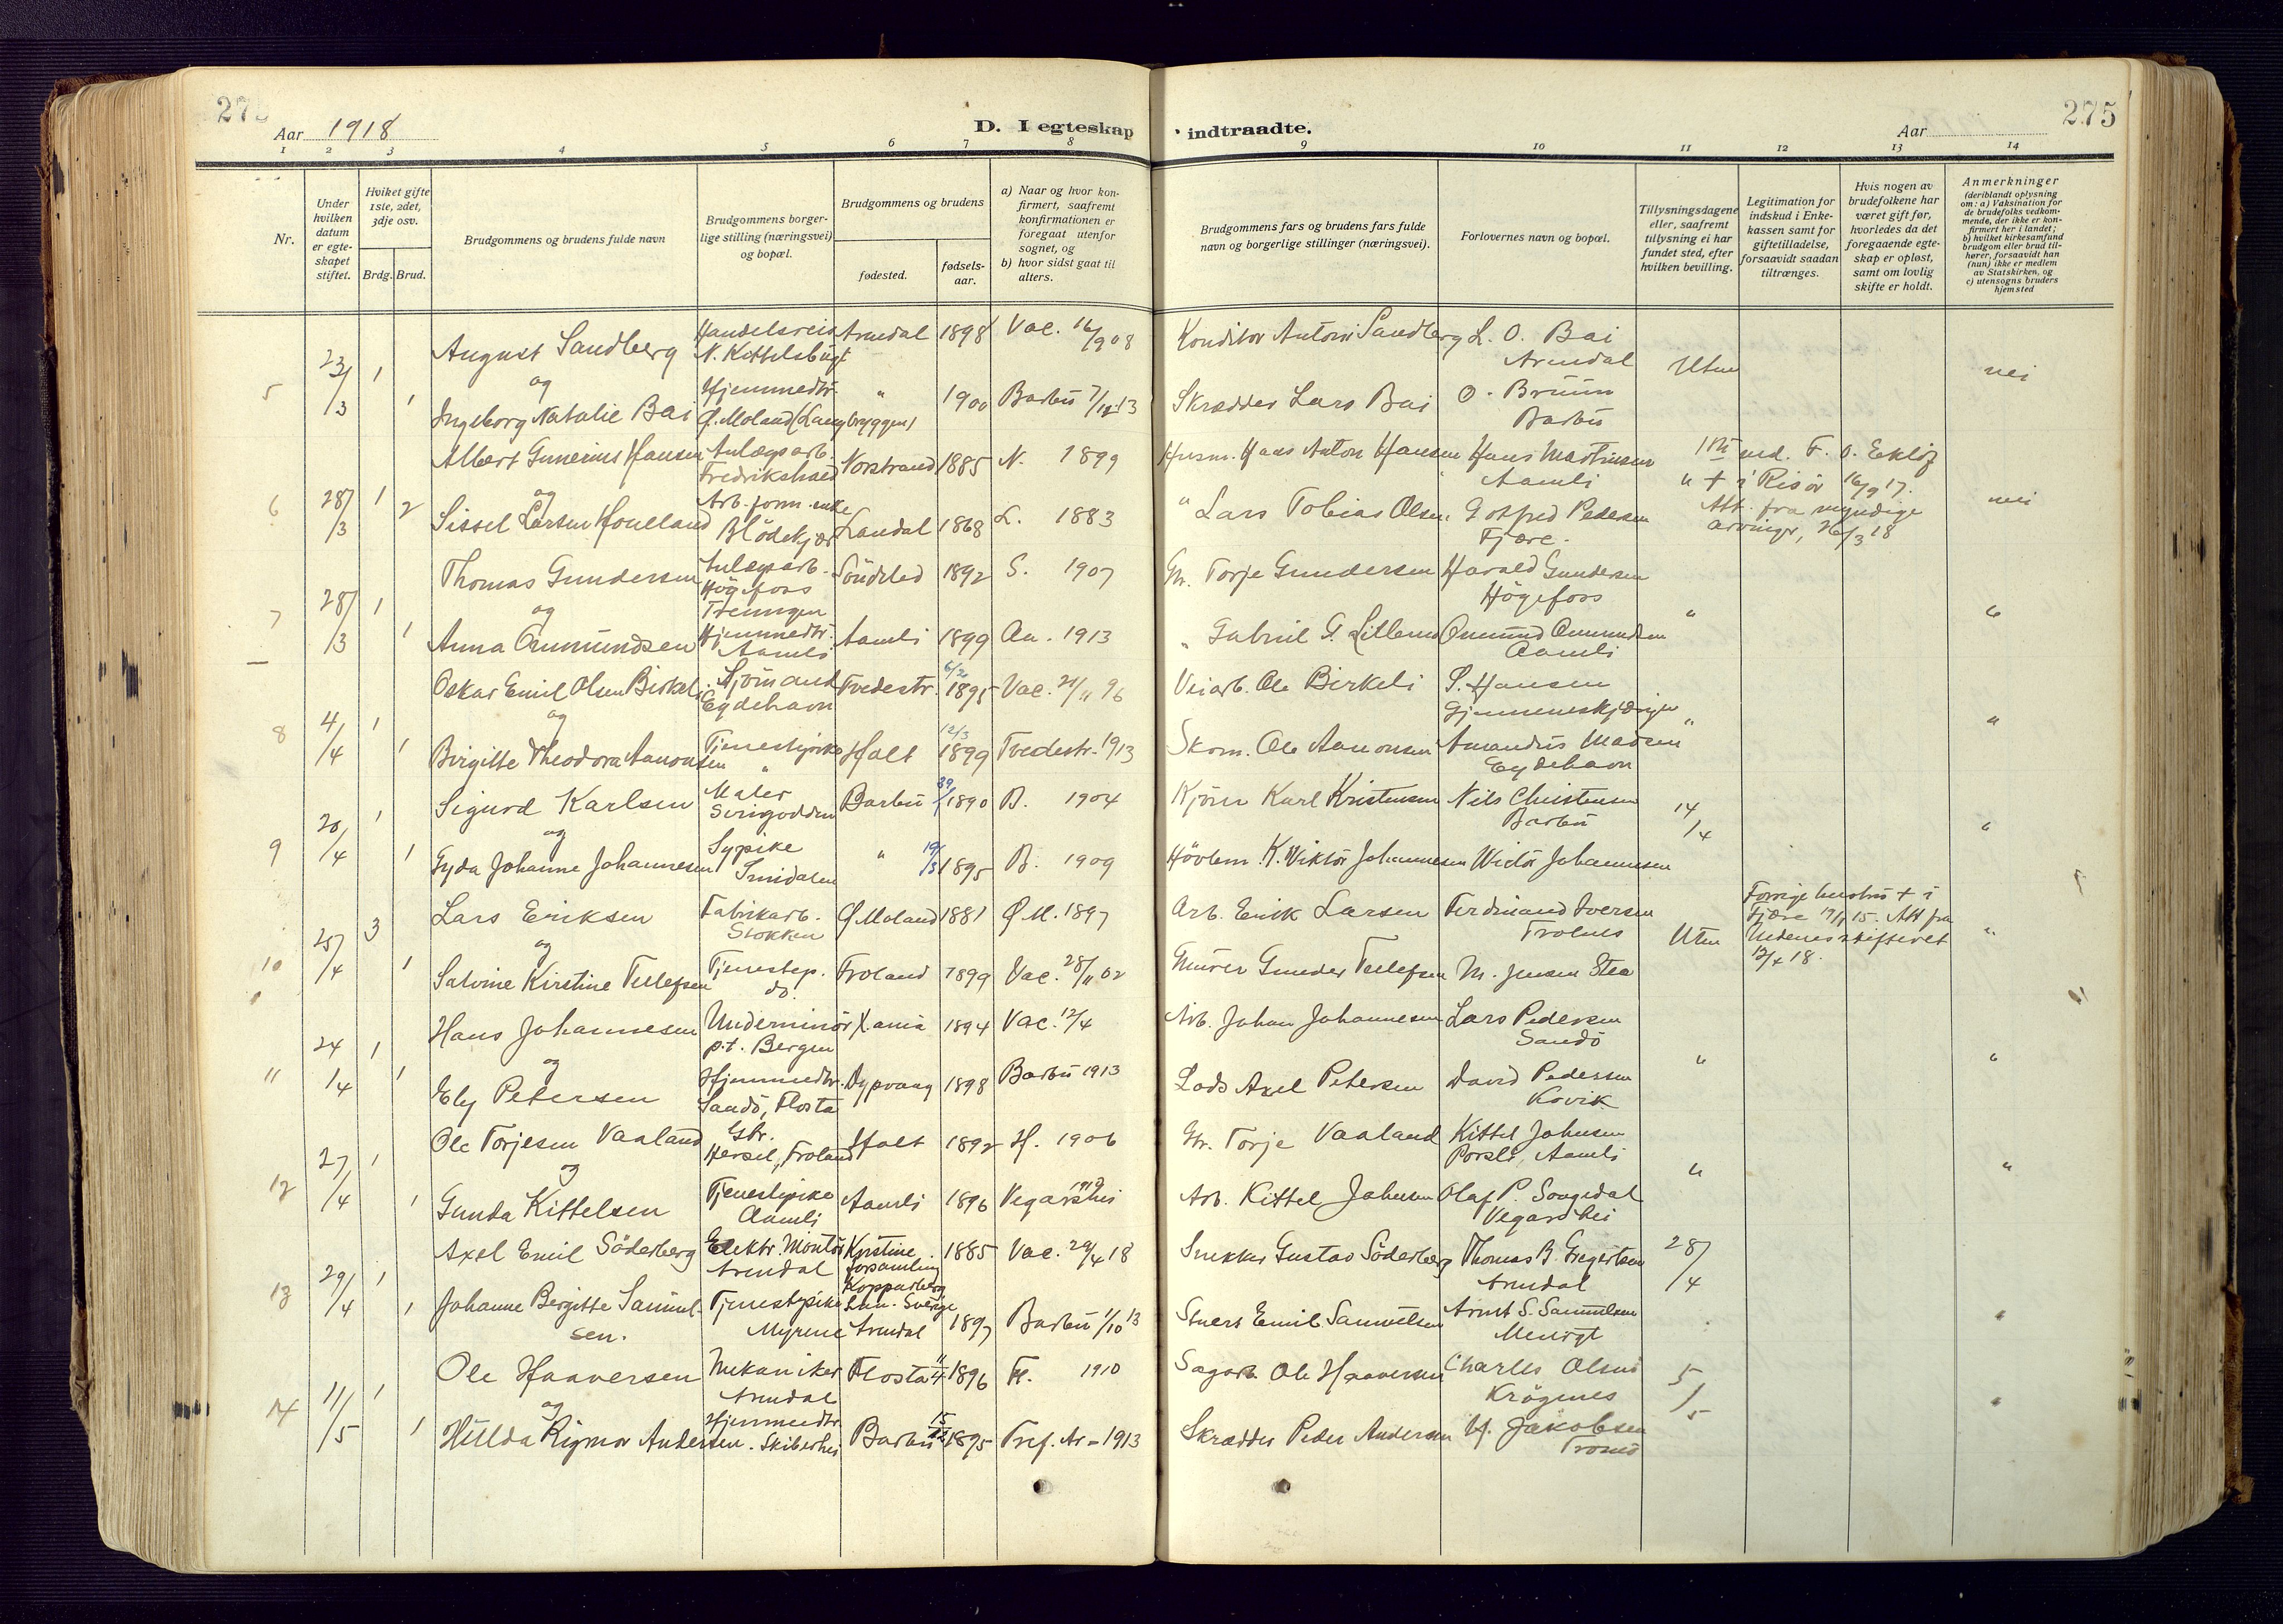 275
Aar 1918
D. I egteskap indtraadte.
Aar
275
1 2 3 4 5 6 7 8 9 10 11 12 13 14
Nr.
Under hvilken datum er egteskapet stiftet.
Hviket gifte 1ste, 2det, 3dje osv.
Brdg. Brud.
Brudgommens og brudens fulde navn
Brudgommens borgerlige stilling (næringsvei) og bopæl.
Brudgommens og brudens
fødested.
fødselsaar.
a) Naar og hvor konfirmert, saafremt konfirmationen er foregaat utenfor sognet, og
b) hvor sidst gaat til alters.
Brudgommens fars og brudens fars fulde navn og borgerlige stillinger (næringsvei).
Forlovernes navn og bopæl.
Tillysningsdagene eller, saafremt tillysning ei har fundet sted, efter hvilken bevilling.
Legitimation for indskud i Enkekassen samt for giftetilladelse, forsaavidt saadan tiltrænges.
Hvis nogen av brudefolkene har været gift før, hvorledes da det foregaaende egteskap er opløst, samt om lovlig skifte er holdt.
Anmerkninger
(deriblandt oplysning om: a) Vaksination for de brudefolks vedkommende, der ikke er konfirmert her i landet;
b) hvilket kirkesamfund brudgom eller brud tilhører, forsaavidt han (hun) ikke er medlem av Statskirken, og
c) utensogns bruders hjemsted
5 23/3 1 August Sandberg Handelsreis. N. Kittelsbugt Arendal 1898 Vac. 16/9 08 Konditor Anton Sandberg L. O. Bai Arendal Uten nei
og
1 Ingeborg Natalie Bai Hjemmedtr. Ø. Moland (Langbryggen) " 1900 Barbu 7/12 13 Skrædder Lars Bai O. Bruun Barbu
6 28/3 1 Albert Gunerius Hansen Anlægsarb. Fredrikshald Norstrand 1885 N. 1899 Husm. Hans Anton Hansen Hans Martinsen Aamli
og
2 Sissel Larsen Houeland Arb. form. enke Blödekjær Landal 1868 L. 1883 " Lars Tobias Olsen Gotfred Pedersen Fjære.
F. O. Eklöf + i Risör 16/9 17. Att. fra myndige arvinger, 26/3 18 nei
7 28/3 1 Thomas Gundersen Anlægsarb. Högefoss Treungen Söndeled 1892 S. 1907 Gr. Torje Gundersen Harald Gundersen Högefoss " "
og
1 Anna Omundsen Hjemmedtr. Aamli Aamli 1899 Aa. 1913 " Gabriel G. Omund Omundsen Aamli
8 4/4 1 Oskar Emil Olsen Birkeli Sjömand Eydehavn Tvedestr. 6/2 1895 Vac. 21/11 96 Veiarb. Ole Birkeli S. Hansen " "
og
1 Birgitte Theodora Aanonsen Tjenestepike " Holt 12/3 1899 Tvedestr. 1913 Skom. Ole Aanonsen Amandus Madsen Eydehavn
9 20/4 1 Sigurd Karlsen Maler Barbu 1890 B. 1904 Kjörer Karl Kristensen Nils Christensen Barbu 14/4 "
og
1 Gyda Johanne Johannesen Sypike " 19/3 1895 B. 1909 Hövlem. K. Viktor Johannesen Victor Johannesen
10 25/4 3 Lars Eriksen Fabrikarb. Stokken Ø. Moland 1881 Ø. M. 1897 Arb. Erik Larsen Ferdinand Iversen Frolnes Uten Forrige hustru + i Fjære 15. Att fra Nedenes skifteret 12/4 18. "
og
1 Salvine Kirstine Tellefsen Tjenestep. do. Froland 1899 Vac. 28/11 02 Murer Gunder Tellefsen M. Jensen Stea
11 24/4 1 Hans Johannesen Underminör p.t. Bergen X.ania 1894 Vac. 12/4 Arb. Johan Johannesen Lars Pedersen Sandö " "
og
1 Ely Petersen Hjemmedtr. Sandö, Flosta Dypvaag 1898 Barbu 1913 Lods Axel Petersen David Pedersen Kovik
12 27/4 1 Ole Torjesen Vaaland Gbr. Hersel, Froland Holt 1892 H. 1906 Gr. Torje Vaaland Kittel Johnsen Porsli, Aamli " "
og
1 Gunda Kittelsen Tjenestepike Aamli Aamli 1896 Vegarshei Arb. Kittel Johnsen Olaf P. Songedal Vegarshei
13 29/4 1 Axel Emil Söderberg Elektr. Montör Arendal Kristine forsamling Kopparberg Län. Sverige 1885 Vac. 29/4 18 Snekker Gustav Söderberg Thomas B. Gregertsen Arendal 28/4
1 Johanne Bergitte Samuelsen. Tjenestepike Myrene Arendal 1897 Barbu 1/10 13 Stuert Emil Samuelsen Arnt S. Samuelsen "
14 11/5 1 Ole Haaversen Mekaniker Arendal Flosta 11/4 1896 Fl. 1910 Sagarb. Ole Haaversen Charles Olsen Krögenes 5/5 "
og
1 Hillda Rigmor Andersen Hjemmedtr. Skiberhei Barbu 15/12 1895 Tref. Ar. 1913 Skrædder Peder Andersen H. Jakobsen Tromö